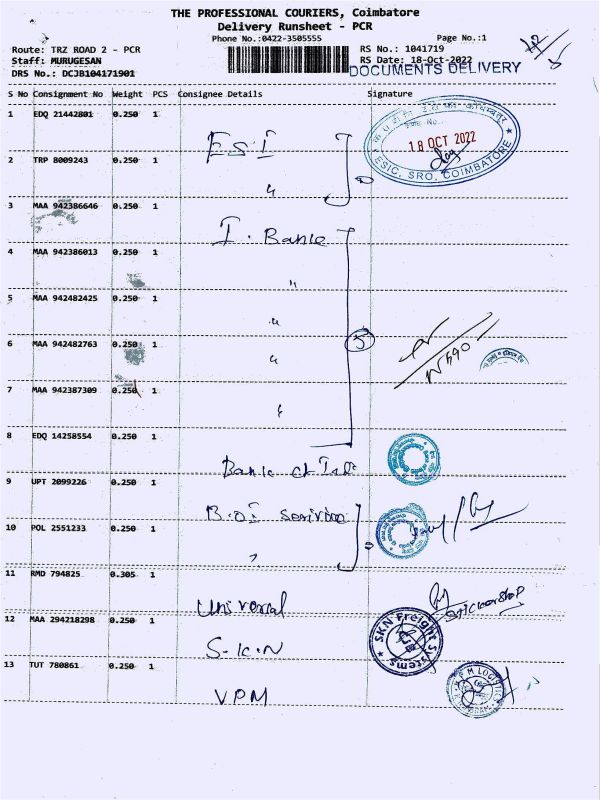 THE PROFESSIONAL COURIERS, Coimbatore
Delivery Runsheet - PCR
Phone No.:0422-3505555
Page No.:1
Route: TRZ ROAD 2 - PCR
RS No.: 1041719
Staff: MURUGESAN
RS Date: 18-Oct-2022
DRS No.: DCJB104171901
DOCUMENTS DELIVERY
S No Consignment No Weight PCS Consignee Details Signature
1 EDQ 21442801 0.250 1
E.S.I
18 OCT 2022
ESIC. SRO. COIMBATORE
2 TRP 8009243 0.250 1
"
3 MAA 942386646 0.250 1
I. Bank
4 MAA 942386013 0.250 1
"
5 MAA 942482425 0.250 1
"
5
6 MAA 942482763 0.250 1
"
7 MAA 942387309 0.250 1
"
8 EDQ 14258554 0.250 1
Bank of
9 UPT 2099226 0.250 1
B.O.I
10 POL 2551233 0.250 1
"
11 RMD 794825 0.305 1
Universal
12 MAA 294218298 0.250 1
S.K.N
SKN Freight Systems
13 TUT 780861 0.250 1
V.P.M